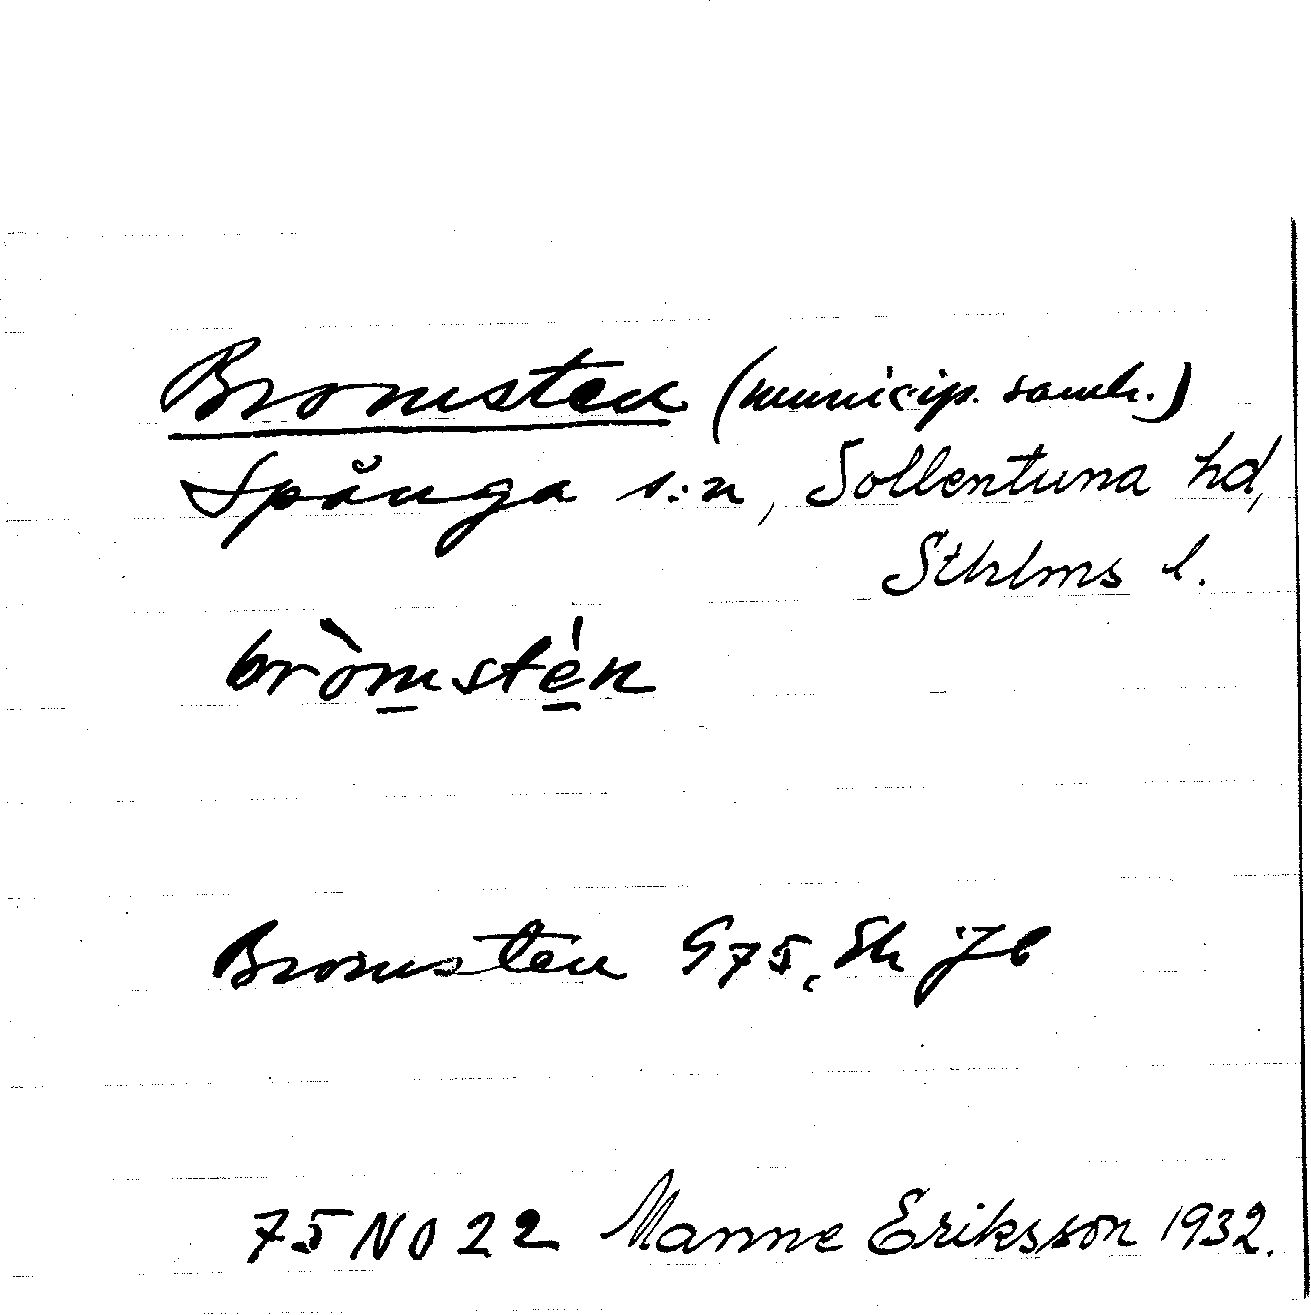 Bromsten (municip. samh.)
Spånga s:n, Sollentuna hd,
Sthlms l.
bròmstén
Bromsten G75, Sk Jb
75 NO 22 Manne Eriksson 1932.